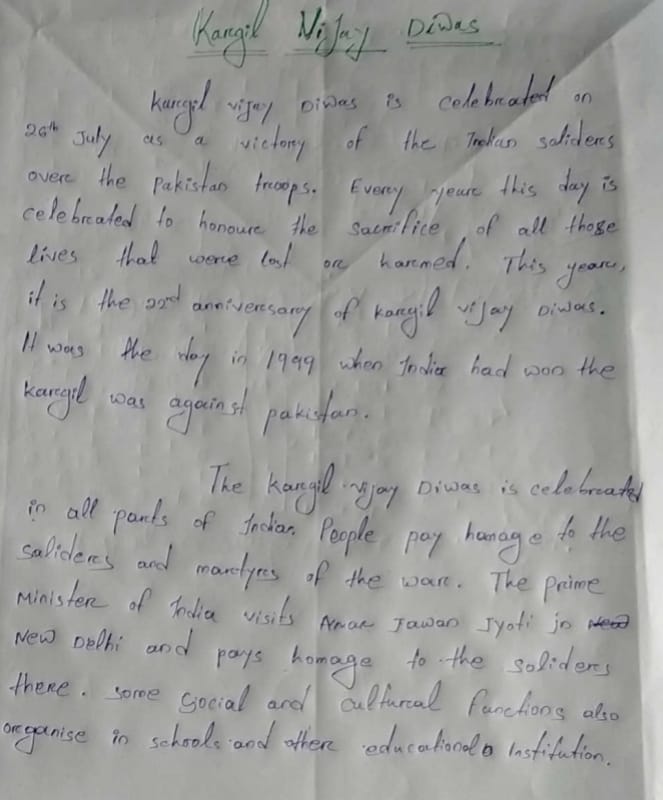 Kargil Vijay Diwas
Kargil vijay Diwas is celebrated on
26th July as a victory of the Indian saliders
over the pakistan troops. Every year this day is
celebrated to honour the sacrifice of all those
lives that were lost or harmed. This year,
it is the 22nd anniversary of Kargil vijay Diwas.
It was the day in 1999 when India had won the
kargil was against pakistan.
The Kargil vijay Diwas is celebrated
in all parts of Indian. People pay homage to the
saliders and martyrs of the war. The prime
Minister of India visits Amar Jawan Jyoti in
New Delhi and pays homage to the soliders
there. some social and cultural functions also
organise in schools and other educational Institution.